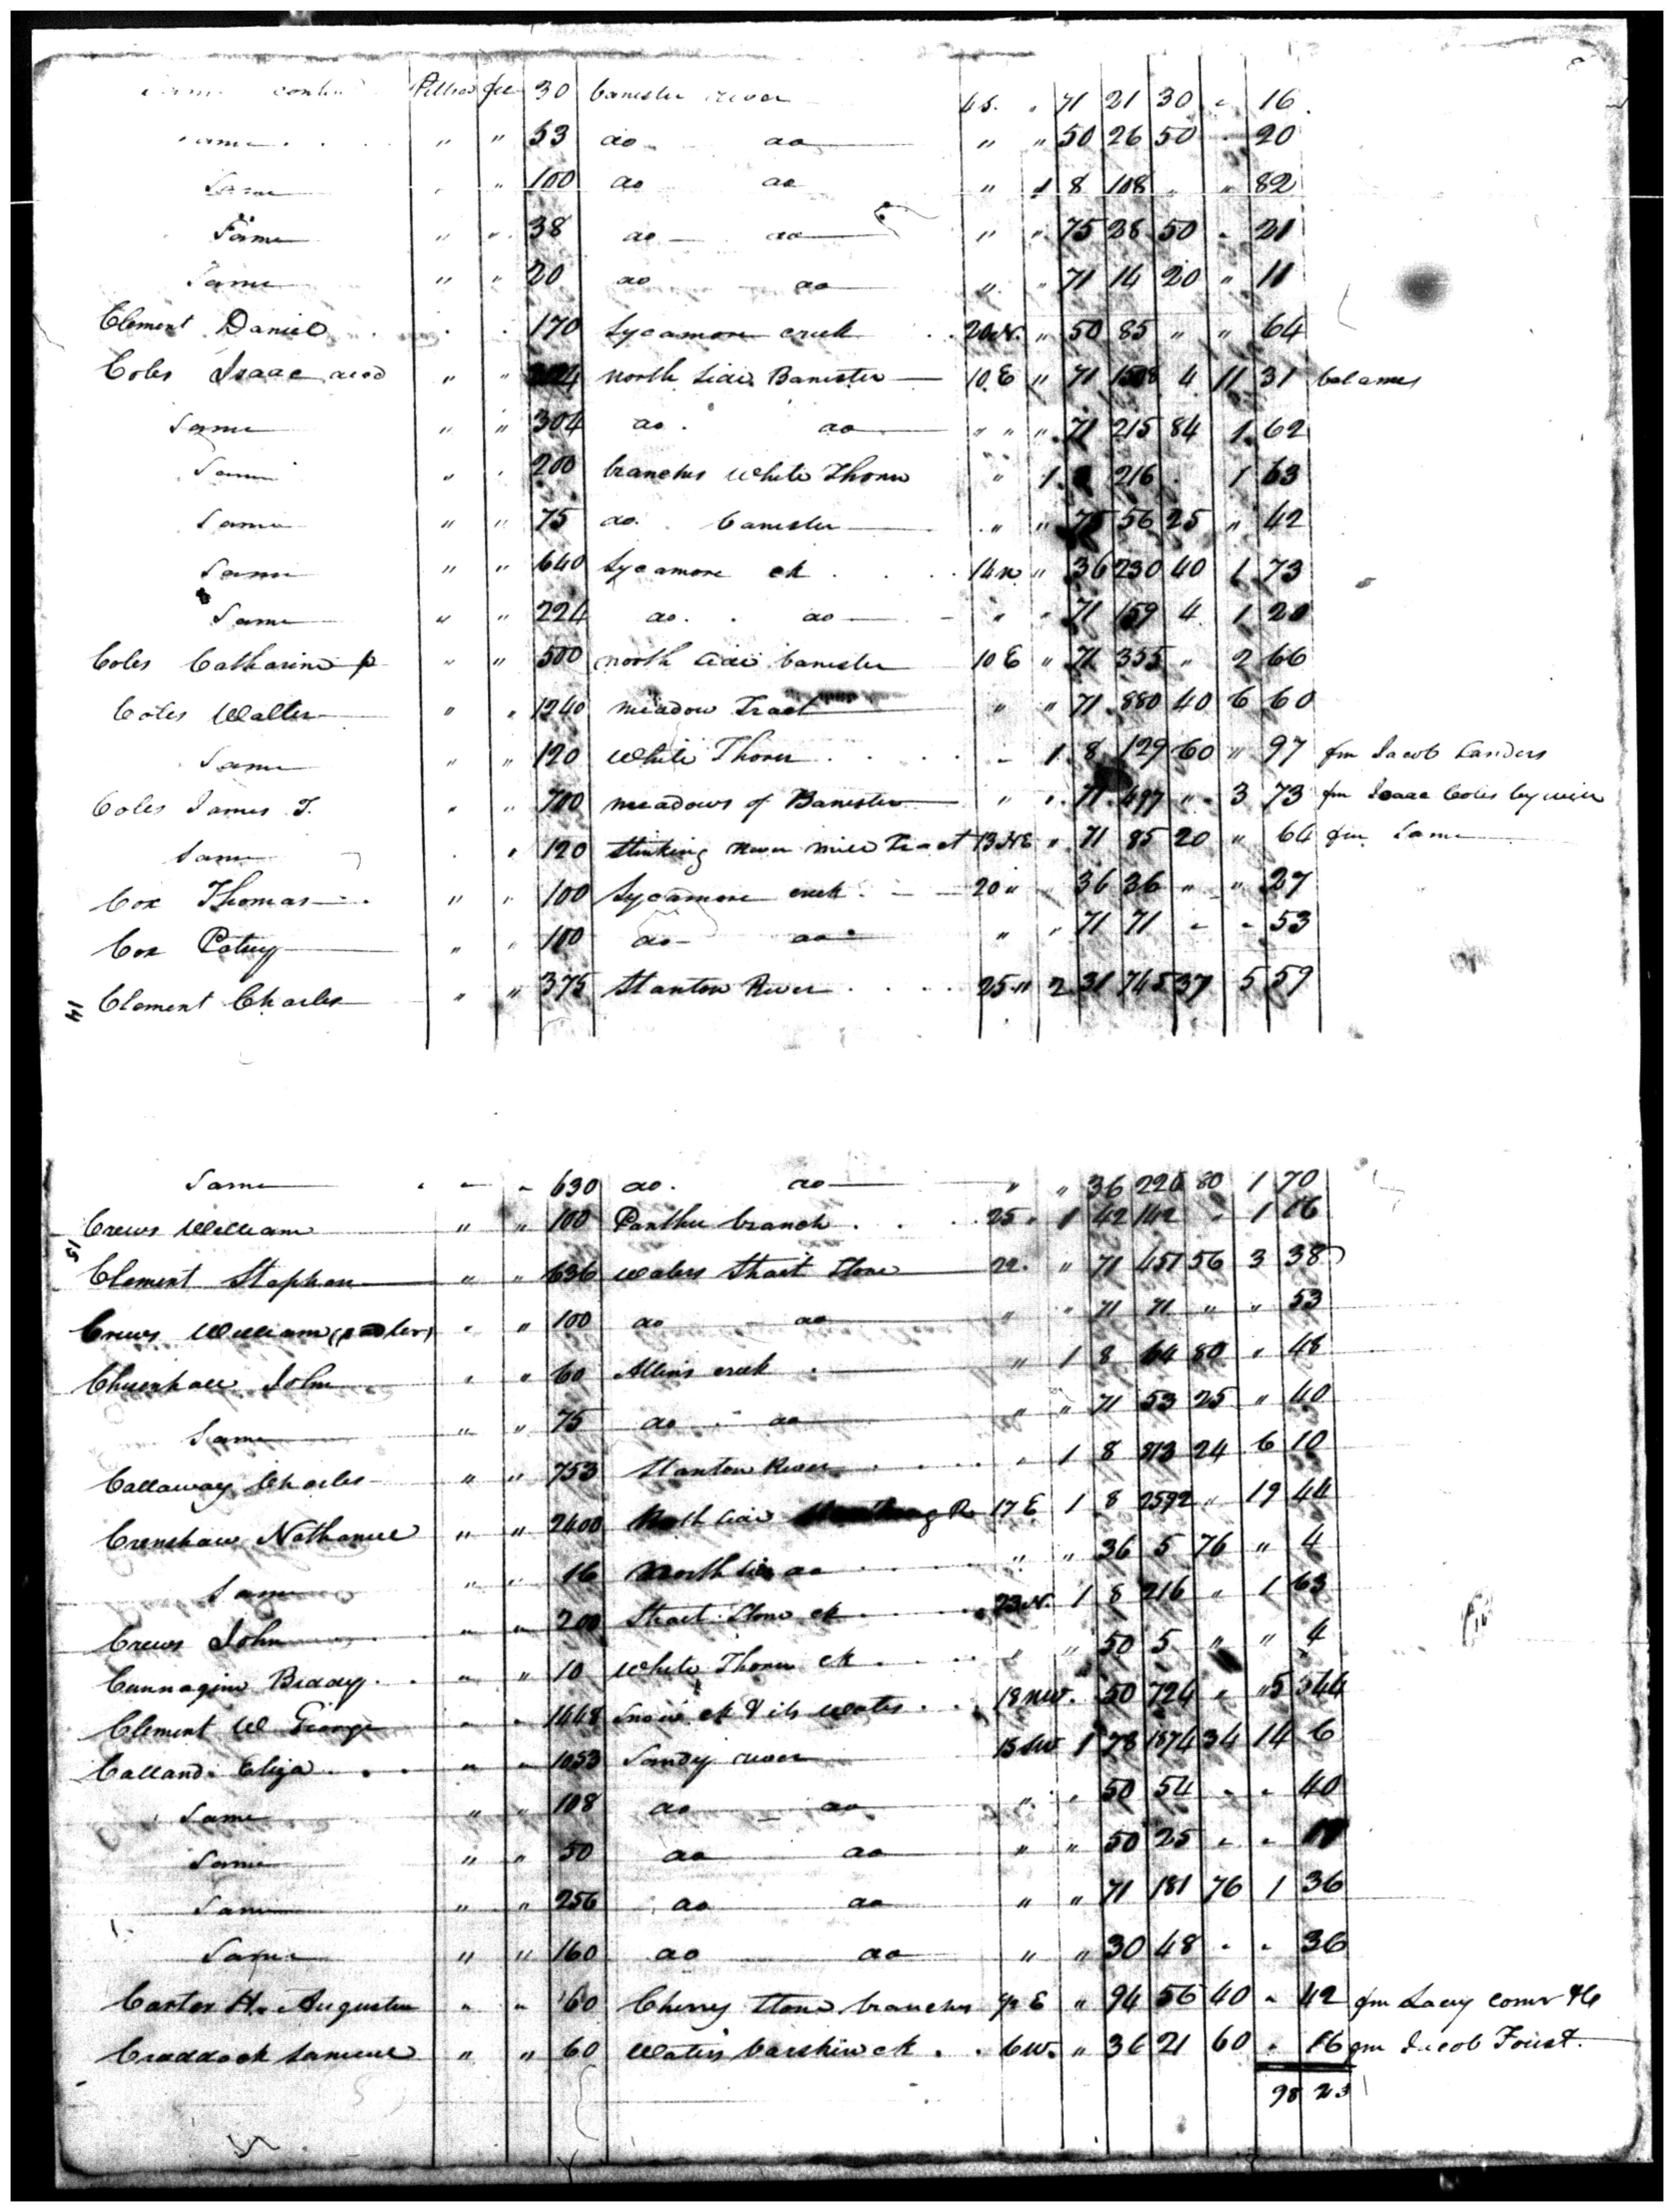 Same contin Pittsa fee 30 banister river 4 S. " 71 21 30 " 16
Same " " 53 do do " " 50 26 50 " 20
Same " " 100 do do " 1 8 108 " " 82
Same " " 38 do do " " 75 28 50 " 21
Same " " 20 do do " " 71 14 20 " 11
Clement Daniel " " 170 Sycamore creek 20 N. " 50 85 " " 64
Coles Isaac decd " " north side Banister 10 E " 71 4 11 31 balance
Same " " 304 do do " " " 71 215 84 1 62
Same " " 200 branches White Thorn " 1 216 1 63
Same " " 75 do banister " " 75 56 25 " 42
Same " " 640 Sycamore ck 14 n " 36 230 40 1 73
Same " " 224 do do " " 71 159 4 1 20
Coles Catharine p " " 500 north side banister 10 E " 71 355 " 2 66
Coles Walter " " 1240 meadow Tract " " 71 880 40 6 60
Same " " 120 White Thorn " 1 8 129 60 " 97 fm Jacob Sanders
Coles James T. " " 700 meadows of Banister " " 71 497 " 3 73 fm Isaac Coles by will
Same " " 120 Stinking River mill Tract 13 NE " 71 85 20 " 64 fm Same
Cox Thomas " " 100 Sycamore creek 20 " " 36 36 " " 27
Cox Patsey " " 100 do do " " 71 71 " " 53
14 Clement Charles " " 375 Stanton River 25 " 2 31 745 37 5 59
Same " " 630 do do " " 36 226 80 1 70
Crews William " " 100 Panther branch 25 " 1 42 142 " 1 16
15
Clement Stephen " " 636 waters Strait Stone 22 " " 71 451 56 3 38
Crews William " " 100 do do " " 71 71 " " 53
John " " 60 Allins creek " 1 8 64 80 " 48
Same " " 75 do do " " 71 53 25 " 40
Callaway Charles " " 753 Stanton River " 1 8 813 24 6 10
Crenshaw Nathaniel " " 2400 side R 17 E 1 8 2592 " 19 44
Same " " 16 North side do " " 36 5 76 " 4
Crews John " " 200 Strait Stone ck 23 N. 1 8 216 " 1 63
Biddy " " 10 White Thorn ck " " 50 5 " " 4
Clement W George " " 1448 Snow ck & its waters 18 NW. " 50 724 " 5 44
Calland Eliza " " 1053 Sandy river 15 SW 1 78 1874 34 14 6
Same " " 108 do do " " 50 54 " " 40
Same " " 50 do do " " 50 25 " "
Same " " 256 do do " " 71 181 76 1 36
Same " " 160 do do " " 30 48 " " 36
Carter H. Augustin " " 60 Cherry Stone branches E " 94 56 40 " 42 fm Lacy comr &c
Craddock Samuel " " 60 Waters bearskin ck 6 W. " 36 21 60 " 16 fm Jacob Foust.
98 23